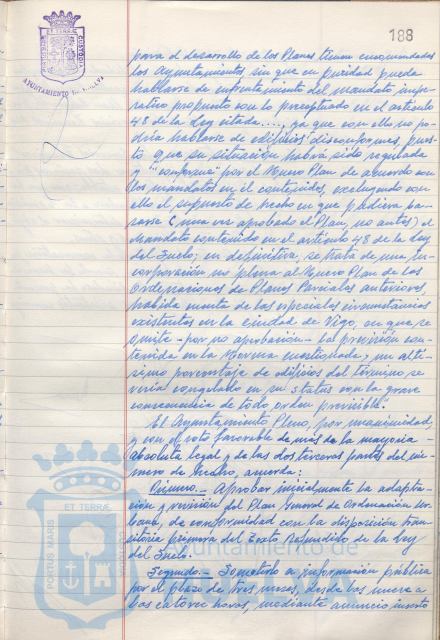 188
ET TERRÆ
CUSTODIA
AYUNTAMIENTO DE HUELVA
para el desarrollo de los Planes tienen encomendados
los Ayuntamientos, sin que en puridad pueda
hablarse de enfrentamiento del mandato impe-
rativo propuesto con lo preceptuado en el artículo
48 de la Ley citada...., ya que con ello no po-
dría hablarse de edificios disconformes, pues-
to que su situación habrá sido regulada
y "conforme" por el Nuevo Plan de acuerdo con
los mandatos en él contenidos, excluyendo con
ello el supuesto de hecho en que pudiera ba-
sarse (una vez aprobado el Plan, no antes) el
Mandato contenido en el artículo 48 de la Ley
del Suelo; en definitiva, se trata de una in-
corporación no plena al Nuevo Plan de las
Ordenaciones de Planes Parciales anteriores,
habida cuenta de las especiales circunstancias
existentes en la ciudad de Vigo, en que se
omite -por no aprobación- la previsión con-
tenida en la Norma cuestionada, y un altí-
simo porcentaje de edificios del término se
vería congelado en su status con la grave
consecuencia de todo orden previsible".
El Ayuntamiento Pleno, por unanimidad,
y con el voto favorable de más de la mayoría
absoluta legal y de las dos terceras partes del nú-
mero de hecho, acuerda:
Primero.- Aprobar inicialmente la adapta-
ción y revisión del Plan General de Ordenación Ur-
bana, de conformidad con la disposición tran-
sitoria primera del Texto Refundido de la Ley
del Suelo.
Segundo.- Someterlo a información pública
por el plazo de tres meses, desde las nueve a
las catorce horas, mediante anuncio inserto
ET TERRÆ
PORTUS MARIS
Ayuntamiento de
HUELVA